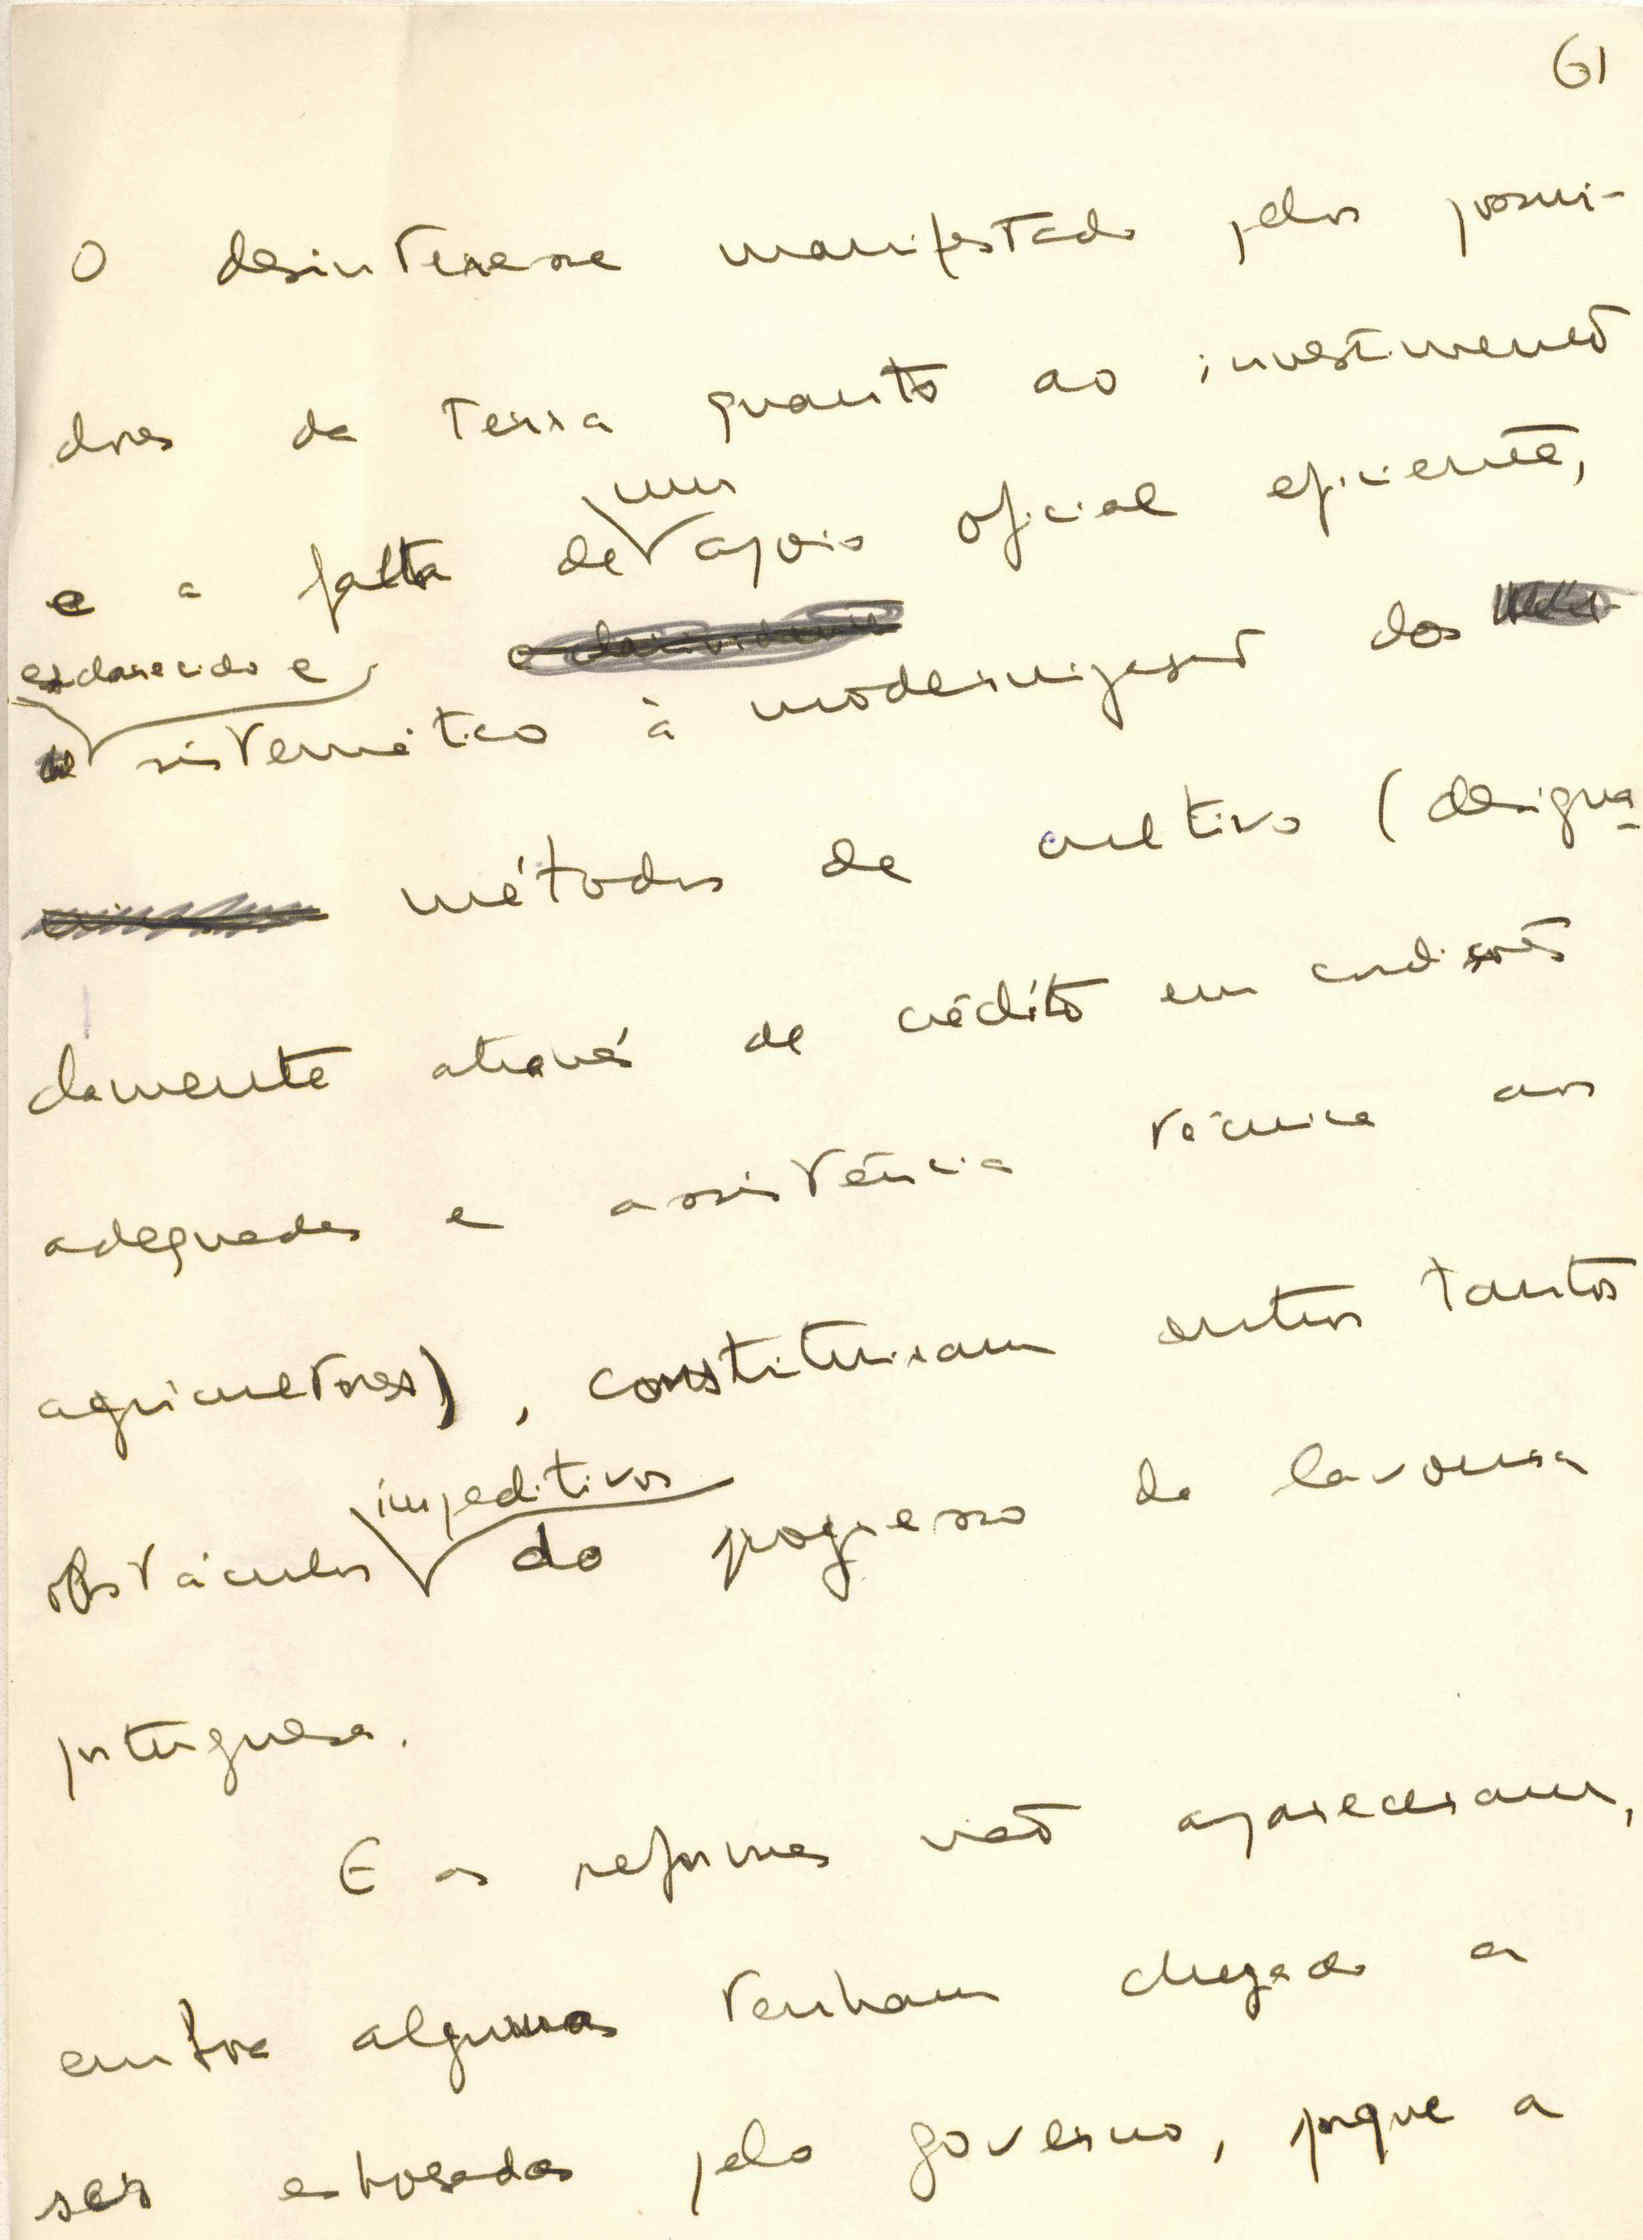 61
O desinteresse manifestado pelos possui-
dores da terra quanto ao investimento
e a falta de um apoio oficial eficiente,
esclarecido e
sistemático à modernização dos
métodos de cultivo (designa-
damente através de crédito em condições
adequadas e assistência técnica aos
agricultores), constituiram outros tantos
obstáculos impeditivos do progresso da lavoura
portuguesa.
E as reformas não apareceram,
embora algumas tenham chegado a
ser esboçadas pelo governo, porque a